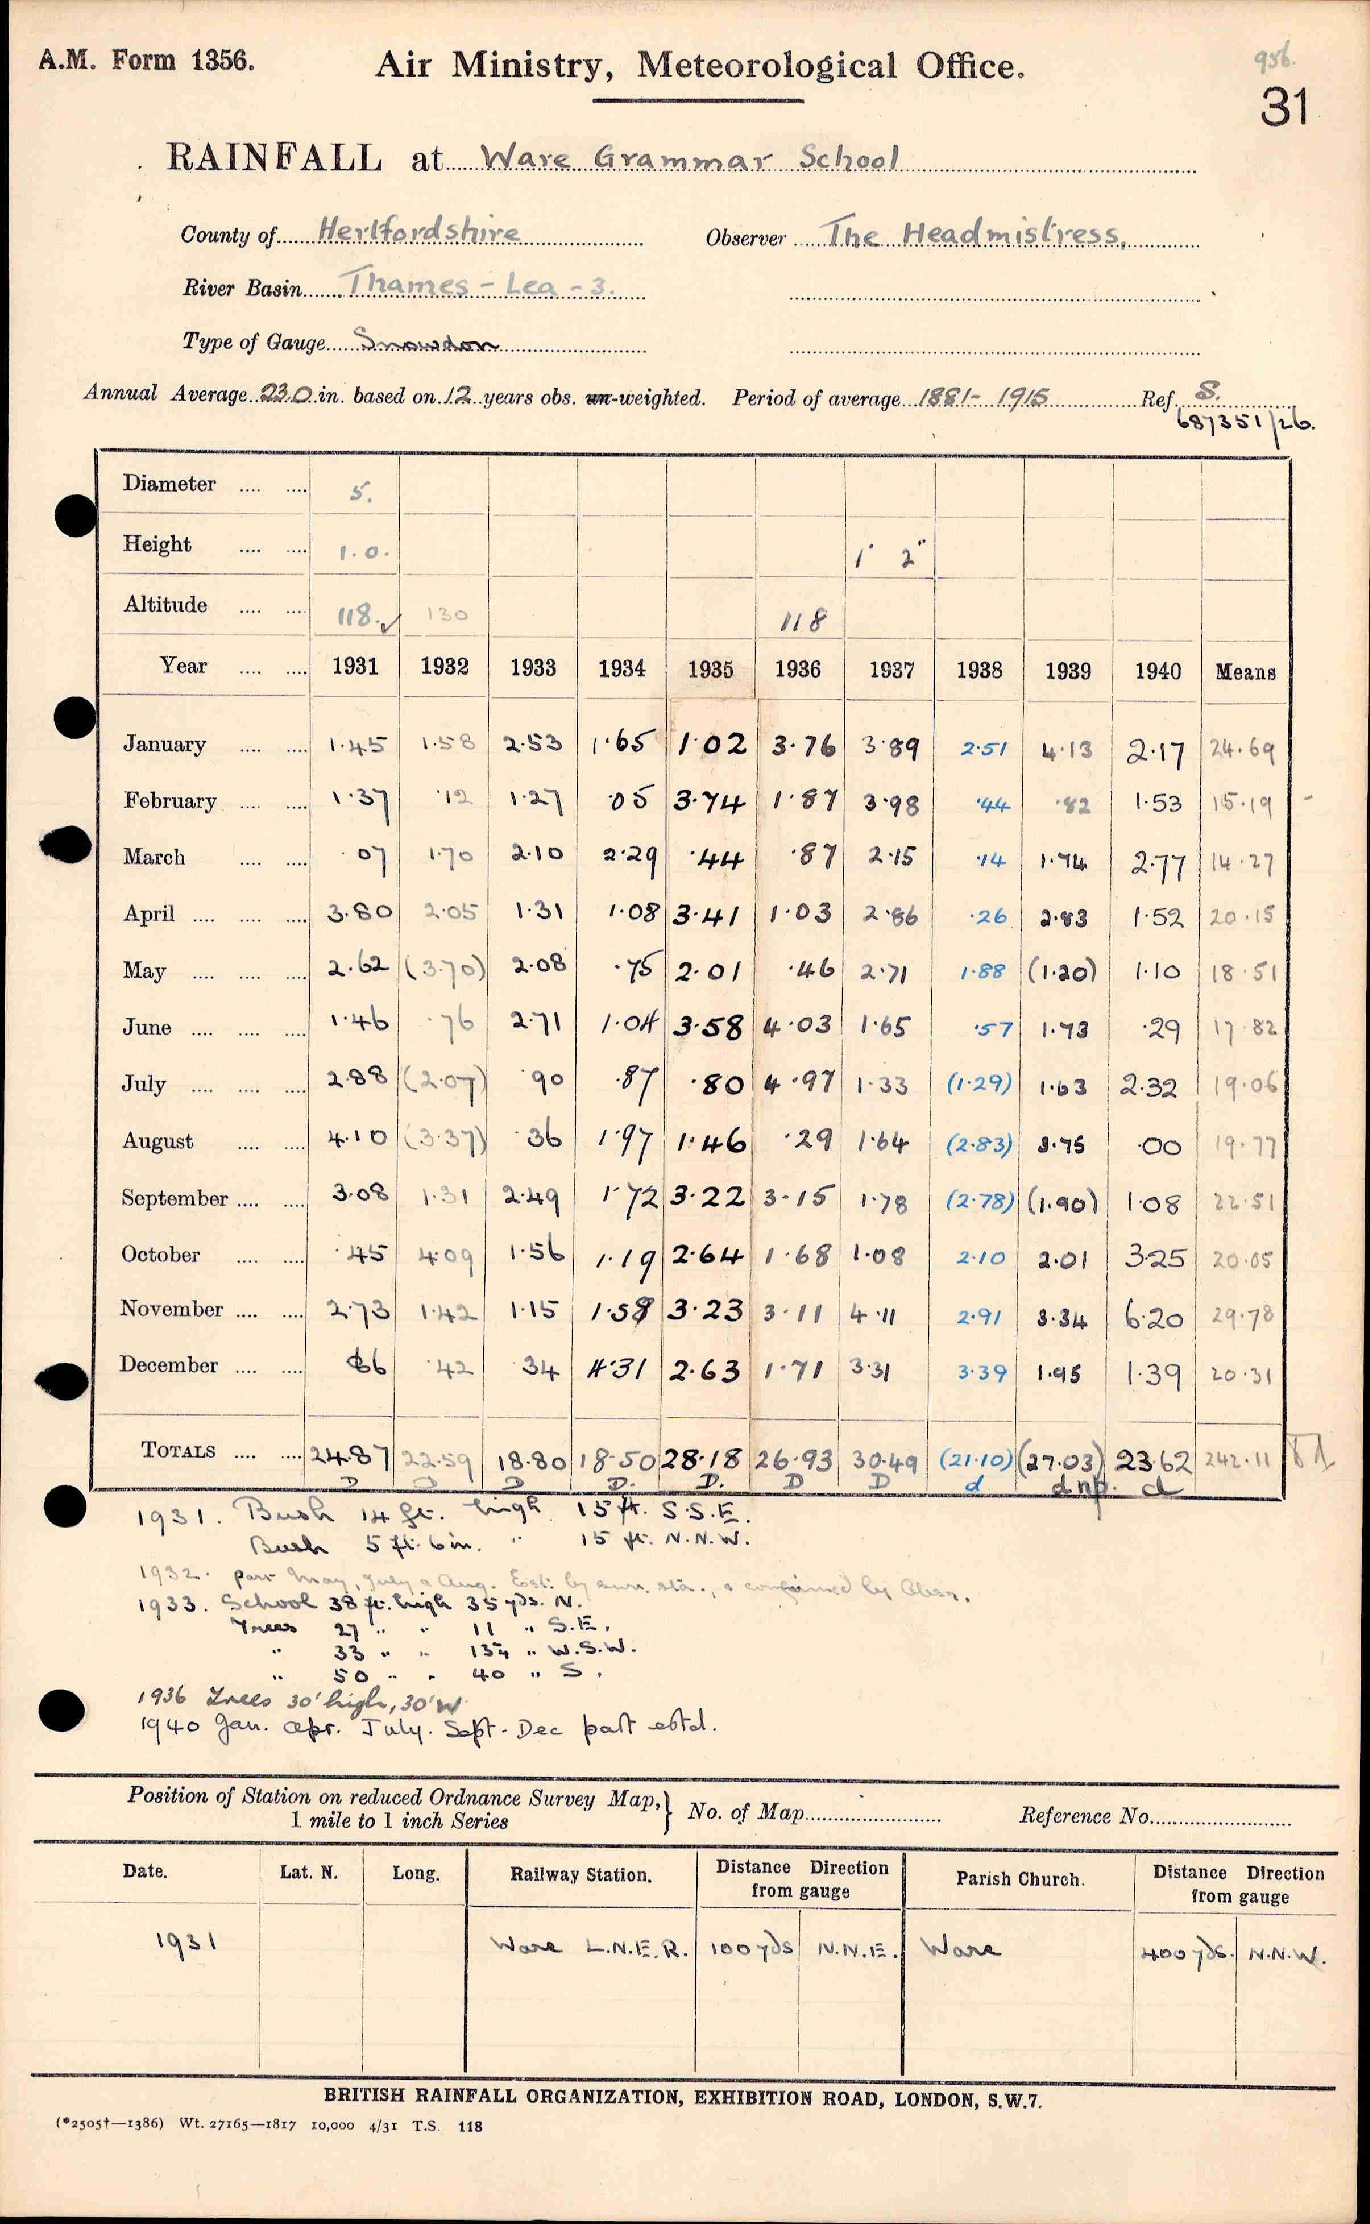 A.M. Form 1356.
Air Ministry, Meteorological Office.
956.
31
RAINFALL at Ware Grammar School
County of Hertfordshire Observer The Headmistress,
River Basin Thames - Lea - 3.
Type of Gauge Snowdon
Annual Average 23.0 in. based on 12 years obs. un-weighted. Period of average 1881 - 1915 Ref. S.
687351/26.
Diameter .... .... 5.
Height .... .... 1.0. 1' 2"
Altitude .... .... 118. ✓ 130 118
Year .... .... 1931 1932 1933 1934 1935 1936 1937 1938 1939 1940 Means
January .... .... 1.45 1.58 2.53 1.65 1.02 3.76 3.89 2.51 4.13 2.17 24.69
February .... .... 1.37 .12 1.27 .05 3.74 1.87 3.98 .44 .82 1.53 15.19
March .... .... .07 1.70 2.10 2.29 .44 .87 2.15 .14 1.74 2.77 14.27
April .... .... .... 3.80 2.05 1.31 1.08 3.41 1.03 2.86 .26 2.83 1.52 20.15
May .... .... .... 2.62 (3.70) 2.08 .75 2.01 .46 2.71 1.88 (1.20) 1.10 18.51
June .... .... .... 1.46 .76 2.71 1.04 3.58 4.03 1.65 .57 1.73 .29 17.82
July .... .... .... 2.88 (2.07) .90 .87 .80 4.97 1.33 (1.29) 1.63 2.32 19.06
August .... .... 4.10 (3.37) .36 1.97 1.46 .29 1.64 (2.83) 3.75 .00 19.77
September .... .... 3.08 1.31 2.49 1.72 3.22 3.15 1.78 (2.78) (1.90) 1.08 22.51
October .... .... .45 4.09 1.56 1.19 2.64 1.68 1.08 2.10 2.01 3.25 20.05
November .... .... 2.73 1.42 1.15 1.58 3.23 3.11 4.11 2.91 3.34 6.20 29.78
December .... .... .86 .42 .34 4.31 2.63 1.71 3.31 3.39 1.95 1.39 20.31
TOTALS .... .... 24.87 22.59 18.80 18.50 28.18 26.93 30.49 (21.10) (27.03) 23.62 242.11
D D D D. D. D D d d np. d
1931. Bush 14 ft. high 15 ft. S.S.E.
Bush 5 ft. 6 in. " 15 ft. N.N.W.
1932. part May, July & Aug. Est. by surr. sta., & confirmed by Obser.
1933. School 38 ft. high 35 yds. N.
Trees 27 " " 11 " S.E.
" 33 " " 134 " W.S.W.
" 50 " " 40 " S.
1936 Trees 30' high, 30' W
1940 Jan. Apr. July. Sept - Dec part estd.
Position of Station on reduced Ordnance Survey Map, } No. of Map Reference No.
1 mile to 1 inch Series
Date. Lat. N. Long. Railway Station. Distance Direction from gauge Parish Church. Distance Direction from gauge
1931 Ware L.N.E.R. 100 yds N.N.E. Ware 400 yds. N.N.W.
BRITISH RAINFALL ORGANIZATION, EXHIBITION ROAD, LONDON, S.W.7.
(*2505†—1386) Wt. 27165—1817 10,000 4/31 T.S. 118